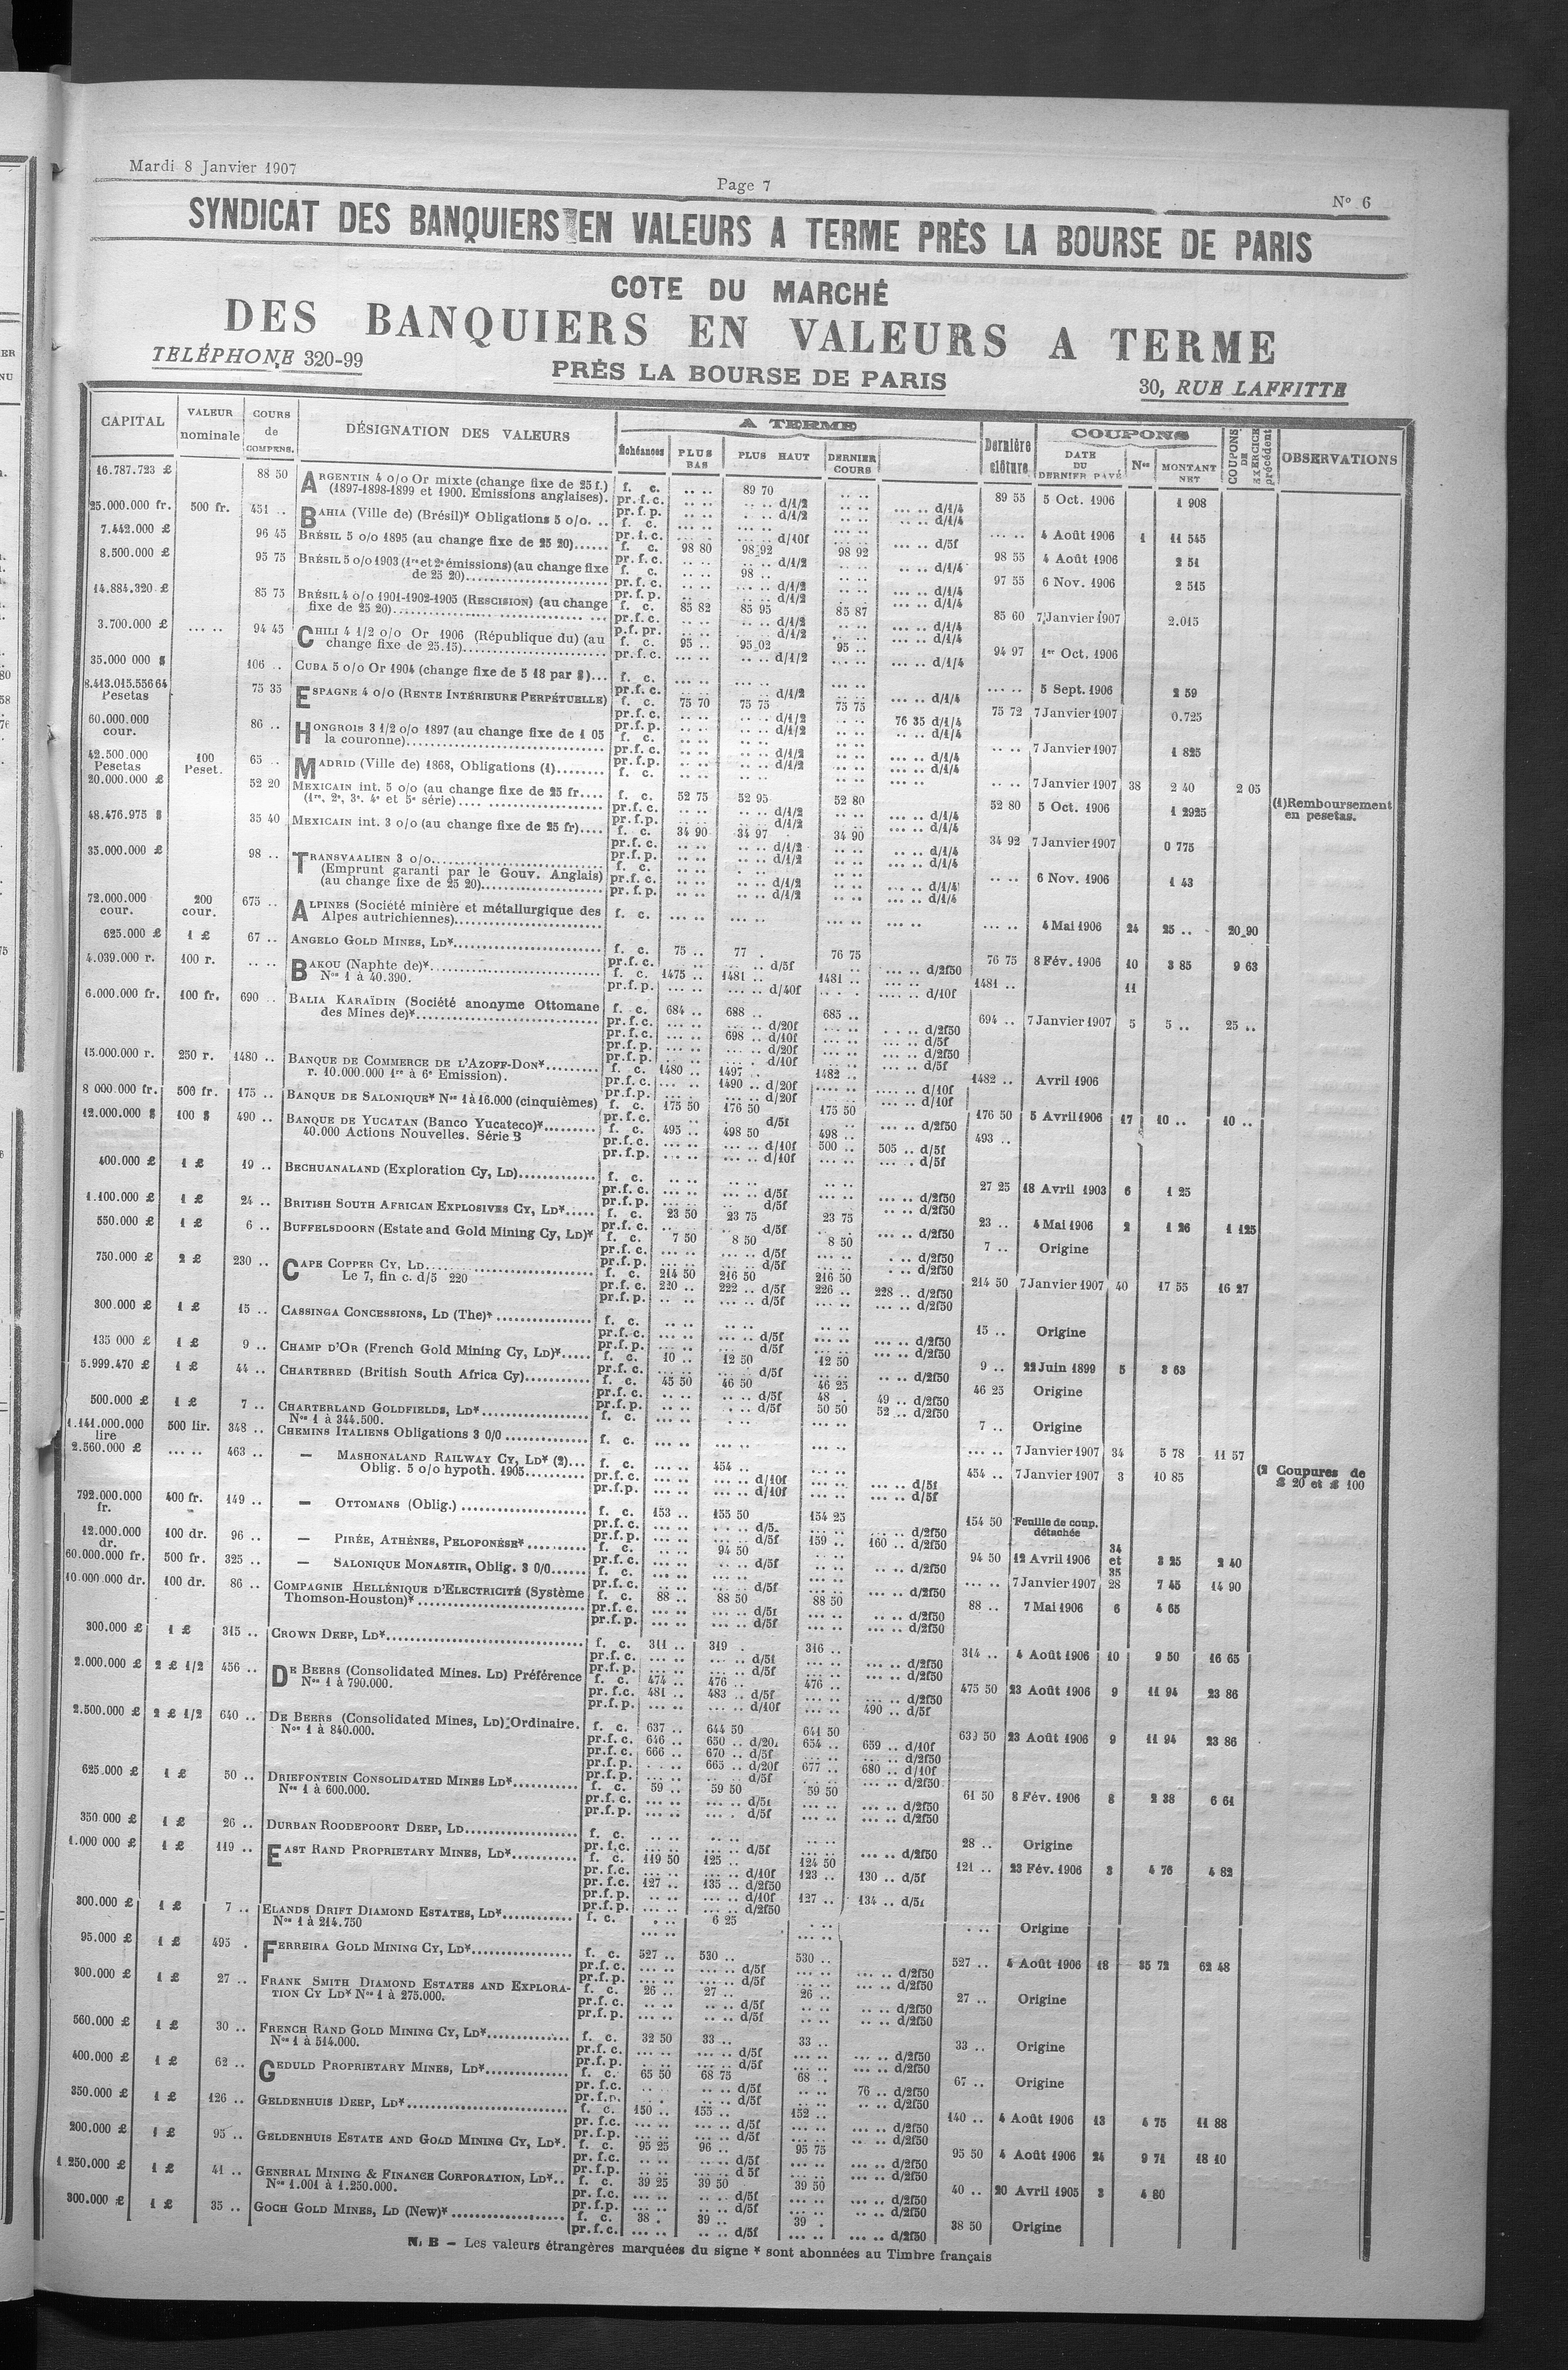 Mardi 8 Janvier 1907
Page 7
Nº 6
SYNDICAT DES BANQUIERS EN VALEURS A TERME PRÈS LA BOURSE DE PARIS
COTE DU MARCHÉ
DES BANQUIERS EN VALEURS A TERME
TELÉPHONE 320-99
PRÈS LA BOURSE DE PARIS
30, RUE LAFFITTE
CAPITAL VALEUR nominale COURS de COMPENS. DÉSIGNATION DES VALEURS A TERME Échéances PLUS BAS PLUS HAUT DERNIER COURS Dernière clôture COUPONS DATE DU DERNIER PAYÉ Nos MONTANT NET COUPONS DE EXERCICE précédent OBSERVATIONS
16.787.723 £ 88 50 ARGENTIN 4 o/o Or mixte (change fixe de 25 f.) f. c. 89 70 89 55 5 Oct. 1906 1 908
(1897-1898-1899 et 1900. Emissions anglaises).
25.000.000 fr. 500 fr. 451 .. BAHIA (Ville de) (Brésil)* Obligations 5 o/o. .. f. c. 4 Août 1906 1 11 545
7.442.000 £ 96 45 BRÉSIL 5 o/o 1895 (au change fixe de 25 20)...... f. c. 98 80 98 92 98 92 98 55 4 Août 1906 2 51
8.500.000 £ 95 75 BRÉSIL 5 o/o 1903 (1re et 2e émissions) (au change fixe de 25 20) f. c. 98 .. 97 55 6 Nov. 1906 2 515
14.884.320 £ 85 75 BRÉSIL 4 o/o 1901-1902-1905 (RESCISION) (au change fixe de 25 20) f. c. 85 82 85 95 85 87 85 60 7 Janvier 1907 2.015
3.700.000 £ 94 45 CHILI 4 1/2 o/o Or 1906 (République du) (au change fixe de 25.15) f. c. 95 .. 95 02 95 .. 94 97 1er Oct. 1906
35.000 000 $ 106 .. CUBA 5 o/o Or 1904 (change fixe de 5 18 par $)... f. c. 5 Sept. 1906 2 59
8.413.015.556 64 Pesetas 75 35 ESPAGNE 4 o/o (RENTE INTÉRIEURE PERPÉTUELLE) f. c. 75 70 75 75 75 75 76 35 d/1/4 75 72 7 Janvier 1907 0.725
60.000.000 cour. 86 .. HONGROIS 3 1/2 o/o 1897 (au change fixe de 1 05 la couronne) f. c. 7 Janvier 1907 1 825
42.500.000 Pesetas 100 Peset. 65 .. MADRID (Ville de) 1868, Obligations (1)........ f. c. 7 Janvier 1907 38 2 40 2 05
20.000.000 £ 52 20 MEXICAIN int. 5 o/o (au change fixe de 25 fr.... f. c. 52 75 52 95 52 80 52 80 5 Oct. 1906 1 2925
(1re, 2e, 3e. 4e et 5e série)
(1) Remboursement en pesetas.
48.476.975 $ 35 40 MEXICAIN int. 3 o/o (au change fixe de 25 fr).... f. c. 34 90 34 97 34 90 34 92 7 Janvier 1907 0 775
35.000.000 £ 98 .. TRANSVAALIEN 3 o/o f. c. 6 Nov. 1906 1 43
(Emprunt garanti par le Gouv. Anglais)
(au change fixe de 25 20)
72.000.000 cour. 200 cour. 675 .. ALPINES (Société minière et métallurgique des Alpes autrichiennes) f. c. 4 Mai 1906 24 25 .. 20 90
625.000 £ 1 £ 67 .. ANGELO GOLD MINES, LD* f. c. 75 .. 77 . 76 75 76 75 8 Fév. 1906 10 3 85 9 63
4.039.000 r. 100 r. BAKOU (Naphte de)* f. c. 1475 .. 1481 .. 1481 .. 1481 .. 11
Nos 1 à 40.390.
6.000.000 fr. 100 fr. 690 .. BALIA KARAÏDIN (Société anonyme Ottomane des Mines de)* f. c. 684 .. 688 .. 685 .. 694 .. 7 Janvier 1907 5 5 .. 25 ..
pr.f.c. 698 .. d/10f
15.000.000 r. 250 r. 1480 .. BANQUE DE COMMERCE DE L'AZOFF-DON* f. c. 1480 .. 1497 .. 1482 .. 1482 .. Avril 1906
r. 10.000.000 1re à 6e Emission). pr.f.c. 1490 .. d/20f
8 000.000 fr. 500 fr. 175 .. BANQUE DE SALONIQUE* Nos 1 à 16.000 (cinquièmes) f. c. 175 50 176 50 175 50 176 50 5 Avril 1906 17 10 .. 10 ..
12.000.000 $ 100 $ 490 .. BANQUE DE YUCATAN (Banco Yucateco)* f. c. 495 .. 498 50 498 .. 493 ..
40.000 Actions Nouvelles. Série B pr.f.c. d/10f 500 .. 505 .. d/5f
400.000 £ 1 £ 19 .. BECHUANALAND (Exploration Cy, LD) f. c. 27 25 18 Avril 1903 6 1 25
1.100.000 £ 1 £ 24 .. BRITISH SOUTH AFRICAN EXPLOSIVES CY, LD* f. c. 23 50 23 75 23 75 23 .. 4 Mai 1906 2 1 26 1 125
550.000 £ 1 £ 6 .. BUFFELSDOORN (Estate and Gold Mining Cy, LD)* f. c. 7 50 8 50 8 50 7 .. Origine
750.000 £ 2 £ 230 .. CAPE COPPER CY, LD f. c. 214 50 216 50 216 50 214 50 7 Janvier 1907 40 17 55 16 27
Le 7, fin c. d/5 220 pr.f.c. 220 .. 222 .. d/5f 226 .. 228 .. d/2f50
300.000 £ 1 £ 15 .. CASSINGA CONCESSIONS, LD (The)* f. c. 15 .. Origine
135 000 £ 1 £ 9 .. CHAMP D'OR (French Gold Mining Cy, LD)* f. c. 10 .. 12 50 12 50 9 .. 22 Juin 1899 5 3 63
5.999.470 £ 1 £ 44 .. CHARTERED (British South Africa Cy) f. c. 45 50 46 50 46 25 46 25 Origine
pr.f.c. d/5f 48 . 49 .. d/2f50
pr.f.p. d/5f 50 50 52 .. d/2f50
500.000 £ 1 £ 7 .. CHARTERLAND GOLDFIELDS, LD* f. c. 7 .. Origine
Nos 1 à 344.500.
1.141.000.000 lire 500 lir. 348 .. CHEMINS ITALIENS Obligations 3 0/0 f. c. 7 Janvier 1907 34 5 78 11 57
2.560.000 £ 463 .. — MASHONALAND RAILWAY CY, LD* (2)... f. c. 454 .. 454 .. 7 Janvier 1907 3 10 85
Oblig. 5 o/o hypoth. 1905
(2 Coupures de £ 20 et £ 100
792.000.000 fr. 400 fr. 149 .. — OTTOMANS (Oblig.) f. c. 153 .. 155 50 154 25 154 50 Feuille de coup. détachée
pr.f.p. d/5f 159 .. 160 .. d/2f50
12.000.000 dr. 100 dr. 96 .. — PIRÉE, ATHÈNES, PELOPONÈSE* f. c. 94 50 94 50 12 Avril 1906 34 et 35 3 25 2 40
60.000.000 fr. 500 fr. 325 .. — SALONIQUE MONASTIR, Oblig. 3 0/0 f. c. 7 Janvier 1907 28 7 45 14 90
10.000.000 dr. 100 dr. 86 .. COMPAGNIE HELLÉNIQUE D'ELECTRICITÉ (Système Thomson-Houston)* f. c. 88 .. 88 50 88 50 88 .. 7 Mai 1906 6 4 65
300.000 £ 1 £ 315 .. CROWN DEEP, LD* f. c. 311 .. 319 . 316 .. 314 .. 4 Août 1906 10 9 50 16 65
2.000.000 £ 2 £ 1/2 456 .. DE BEERS (Consolidated Mines. LD) Préférence f. c. 474 .. 476 .. 476 .. 475 50 23 Août 1906 9 11 94 23 86
Nos 1 à 790.000. pr.f.c. 481 .. 483 .. d/5f
pr.f.p. d/10f 490 .. d/5f
2.500.000 £ 2 £ 1/2 640 .. DE BEERS (Consolidated Mines, LD) Ordinaire. f. c. 637 .. 644 50 641 50 639 50 23 Août 1906 9 11 94 23 86
Nos 1 à 840.000. pr.f.c. 646 .. 650 .. d/20f 654 .. 659 .. d/10f
pr.f.c. 666 .. 670 .. d/5f d/2f50
pr.f.p. 665 .. d/20f 677 .. 680 .. d/10f
625.000 £ 1 £ 50 .. DRIEFONTEIN CONSOLIDATED MINES LD* f. c. 59 .. 59 50 59 50 61 50 8 Fév. 1906 8 2 38 6 61
Nos 1 à 600.000.
350 000 £ 1 £ 26 .. DURBAN ROODEPOORT DEEP, LD f. c. 28 .. Origine
1.000 000 £ 1 £ 119 .. EAST RAND PROPRIETARY MINES, LD* f. c. 119 50 125 .. 124 50 121 .. 23 Fév. 1906 3 4 76 4 82
pr.f.c. d/10f 123 .. 130 .. d/5f
pr.f.c. 127 .. 135 .. d/2f50
pr.f.p. d/10f 127 .. 134 .. d/5f
300.000 £ 1 £ 7 .. ELANDS DRIFT DIAMOND ESTATES, LD* f. c. 6 25 Origine
Nos 1 à 214.750
95.000 £ 1 £ 495 . FERREIRA GOLD MINING CY, LD* f. c. 527 .. 530 .. 530 .. 527 .. 4 Août 1906 18 35 72 62 48
300.000 £ 1 £ 27 .. FRANK SMITH DIAMOND ESTATES AND EXPLORATION CY LD* Nos 1 à 275.000. f. c. 26 .. 27 .. 26 .. 27 .. Origine
560.000 £ 1 £ 30 .. FRENCH RAND GOLD MINING CY, LD* f. c. 32 50 33 .. 33 .. 33 .. Origine
Nos 1 à 514.000.
400.000 £ 1 £ 62 .. GEDULD PROPRIETARY MINES, LD* f. c. 65 50 68 75 68 .. 67 .. Origine
pr.f.c. d/5f 76 .. d/2f50
350.000 £ 1 £ 126 .. GELDENHUIS DEEP, LD* f. c. 150 .. 155 .. 152 .. 140 .. 4 Août 1906 13 4 75 11 88
200.000 £ 1 £ 95 .. GELDENHUIS ESTATE AND GOLD MINING CY, LD*. f. c. 95 25 96 .. 95 75 95 50 4 Août 1906 24 9 71 18 10
1.250.000 £ 1 £ 41 .. GENERAL MINING & FINANCE CORPORATION, LD*.. f. c. 39 25 39 50 39 50 40 .. 20 Avril 1905 3 4 80
Nos 1.001 à 1.250.000.
300.000 £ 1 £ 35 .. GOCH GOLD MINES, LD (New)* f. c. 38 . 39 .. 39 . 38 50 Origine
pr.f.c. d/5f d/2f50
N. B — Les valeurs étrangères marquées du signe * sont abonnées au Timbre français